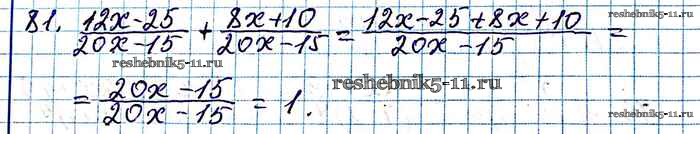 81. \frac{12x-25}{20x-15} + \frac{8x+10}{20x-15} = \frac{12x-25+8x+10}{20x-15} =
reshebnik5-11.ru
reshebnik5-11.ru
= \frac{20x-15}{20x-15} = 1.
reshebnik5-11.ru
reshebnik5-11.ru